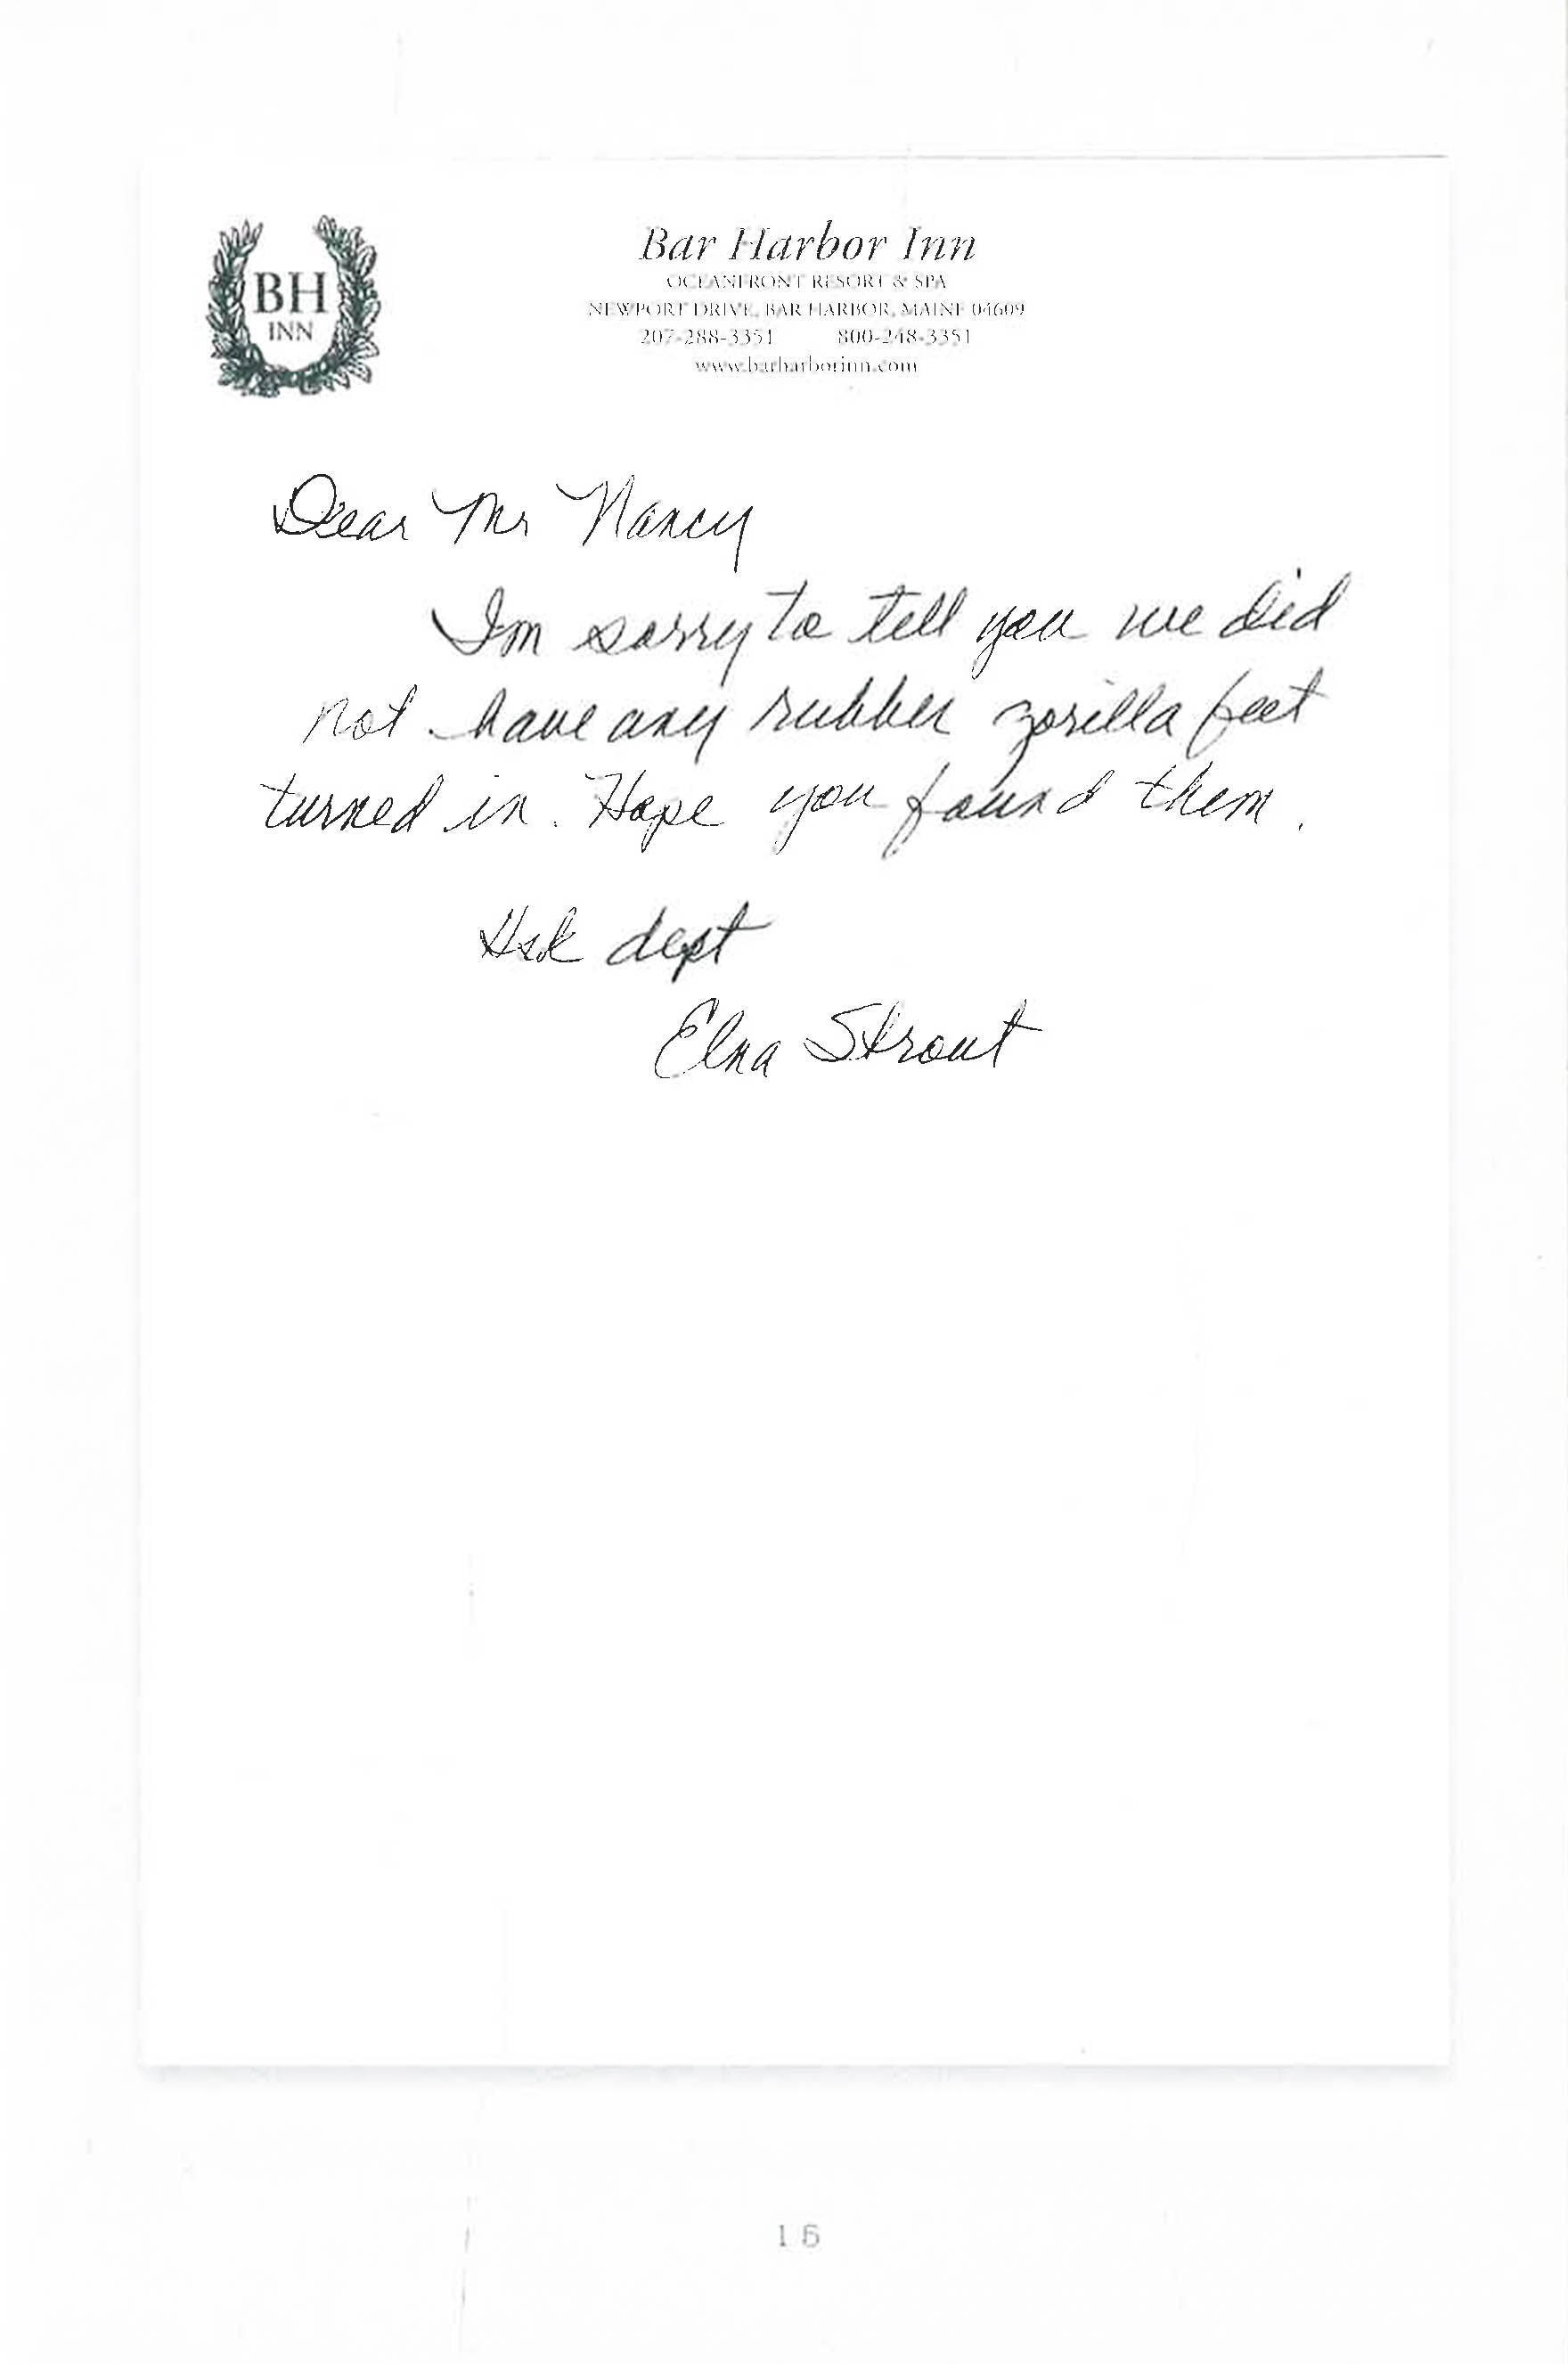 BH
INN
Bar Harbor Inn
OCEANFRONT RESORT & SPA
NEWPORT DRIVE, BAR HARBOR, MAINE 04609
207-288-3351 800-248-3351
www.barharborinn.com
Dear Mr Nancy
Im sorry to tell you we did
not have any rubber gorilla feet
turned in. Hope you found them.
Hsk dept
Elna Strout
16